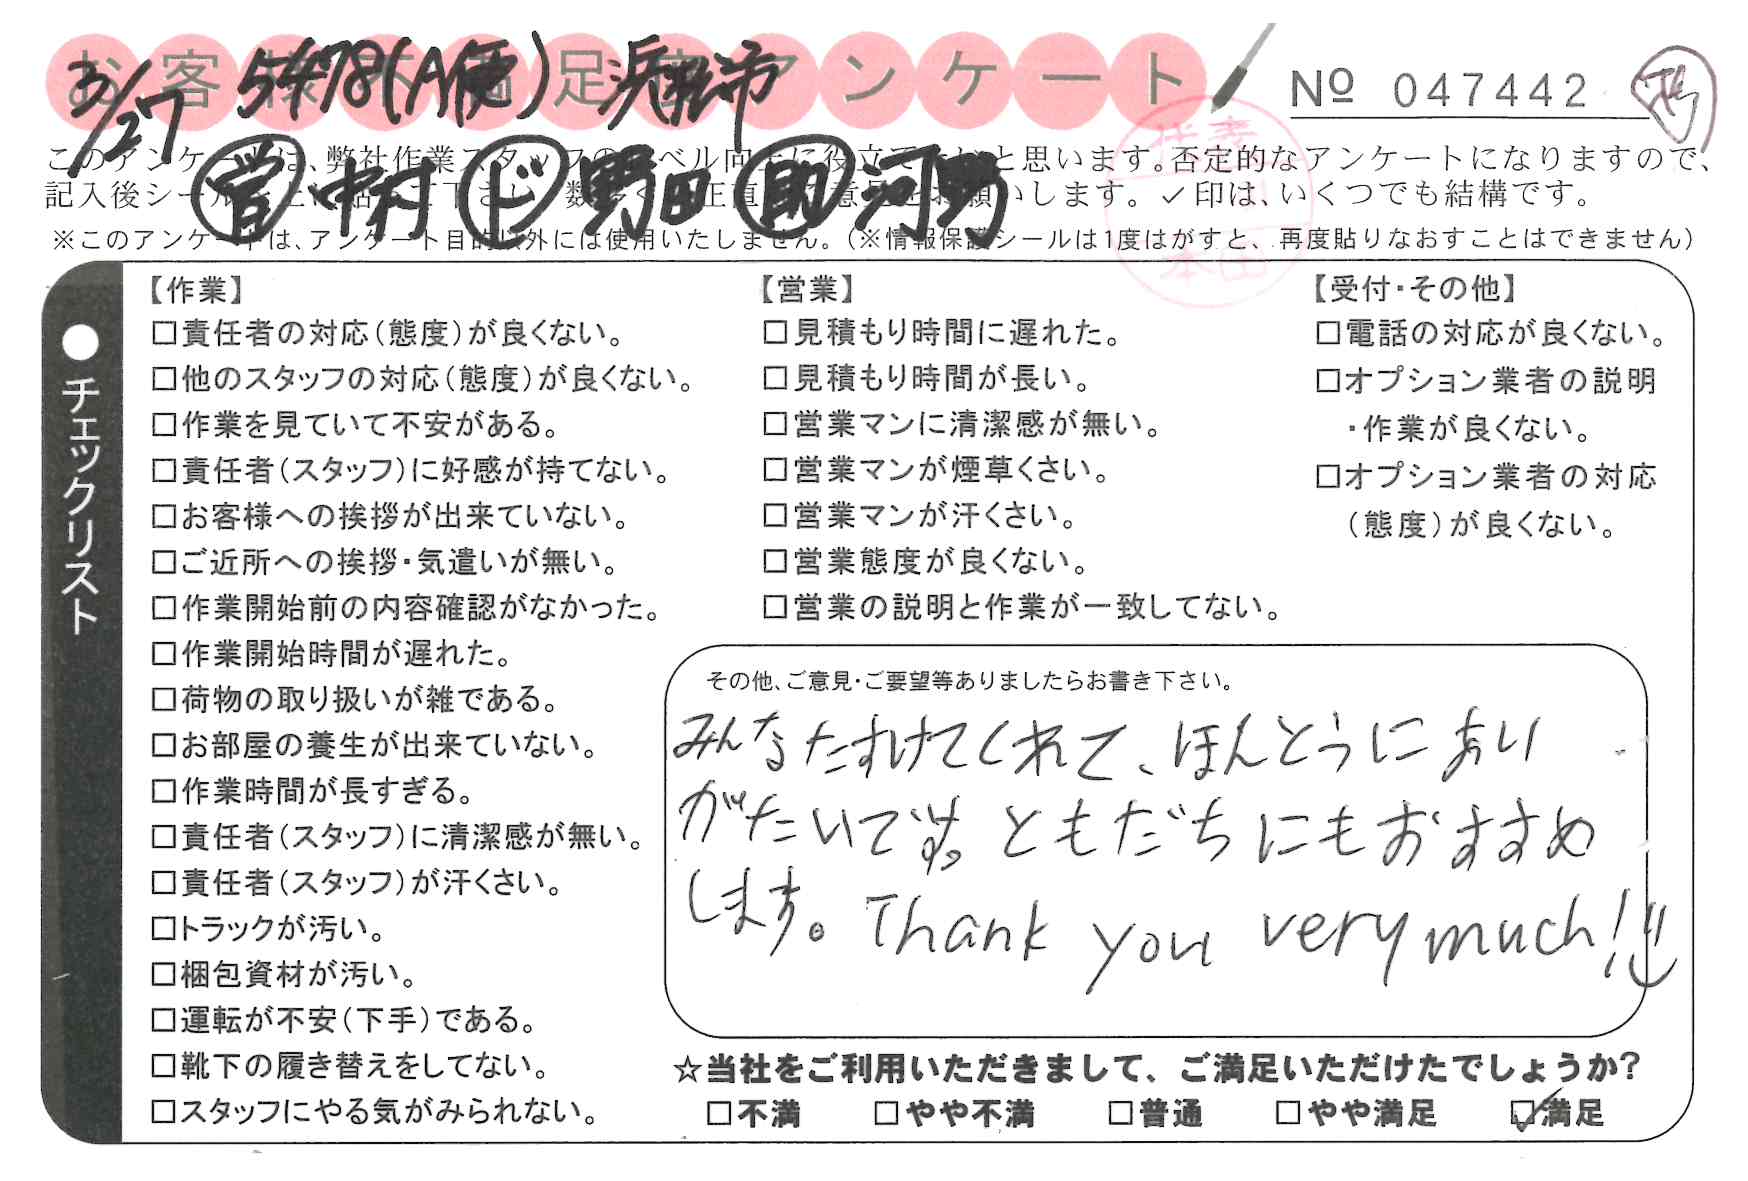 お客様不満足度アンケート
№ 047442
3/27 5478(A便) 浜松市
営 中村 ド 野田 助 河野
このアンケートは、弊社作業スタッフのレベル向上に役立てたいと思います。否定的なアンケートになりますので、
記入後シールを上に貼ってご下さい。数多くの正直なご意見をお願いします。✓印は、いくつでも結構です。
※このアンケートは、アンケート目的以外には使用いたしません。（※情報保護シールは1度はがすと、再度貼りなおすことはできません）
代表
本田
●チェックリスト
【作業】
□責任者の対応（態度）が良くない。
□他のスタッフの対応（態度）が良くない。
□作業を見ていて不安がある。
□責任者（スタッフ）に好感が持てない。
□お客様への挨拶が出来ていない。
□ご近所への挨拶・気遣いが無い。
□作業開始前の内容確認がなかった。
□作業開始時間が遅れた。
□荷物の取り扱いが雑である。
□お部屋の養生が出来ていない。
□作業時間が長すぎる。
□責任者（スタッフ）に清潔感が無い。
□責任者（スタッフ）が汗くさい。
□トラックが汚い。
□梱包資材が汚い。
□運転が不安（下手）である。
□靴下の履き替えをしてない。
□スタッフにやる気がみられない。
【営業】
□見積もり時間に遅れた。
□見積もり時間が長い。
□営業マンに清潔感が無い。
□営業マンが煙草くさい。
□営業マンが汗くさい。
□営業態度が良くない。
□営業の説明と作業が一致してない。
【受付・その他】
□電話の対応が良くない。
□オプション業者の説明
・作業が良くない。
□オプション業者の対応
（態度）が良くない。
その他、ご意見・ご要望等ありましたらお書き下さい。
みんなたすけてくれて、ほんとうにあり
がたいです。ともだちにもおすすめ
します。Thank you very much!!
☆当社をご利用いただきまして、ご満足いただけたでしょうか？
□不満 □やや不満 □普通 □やや満足 ☑満足